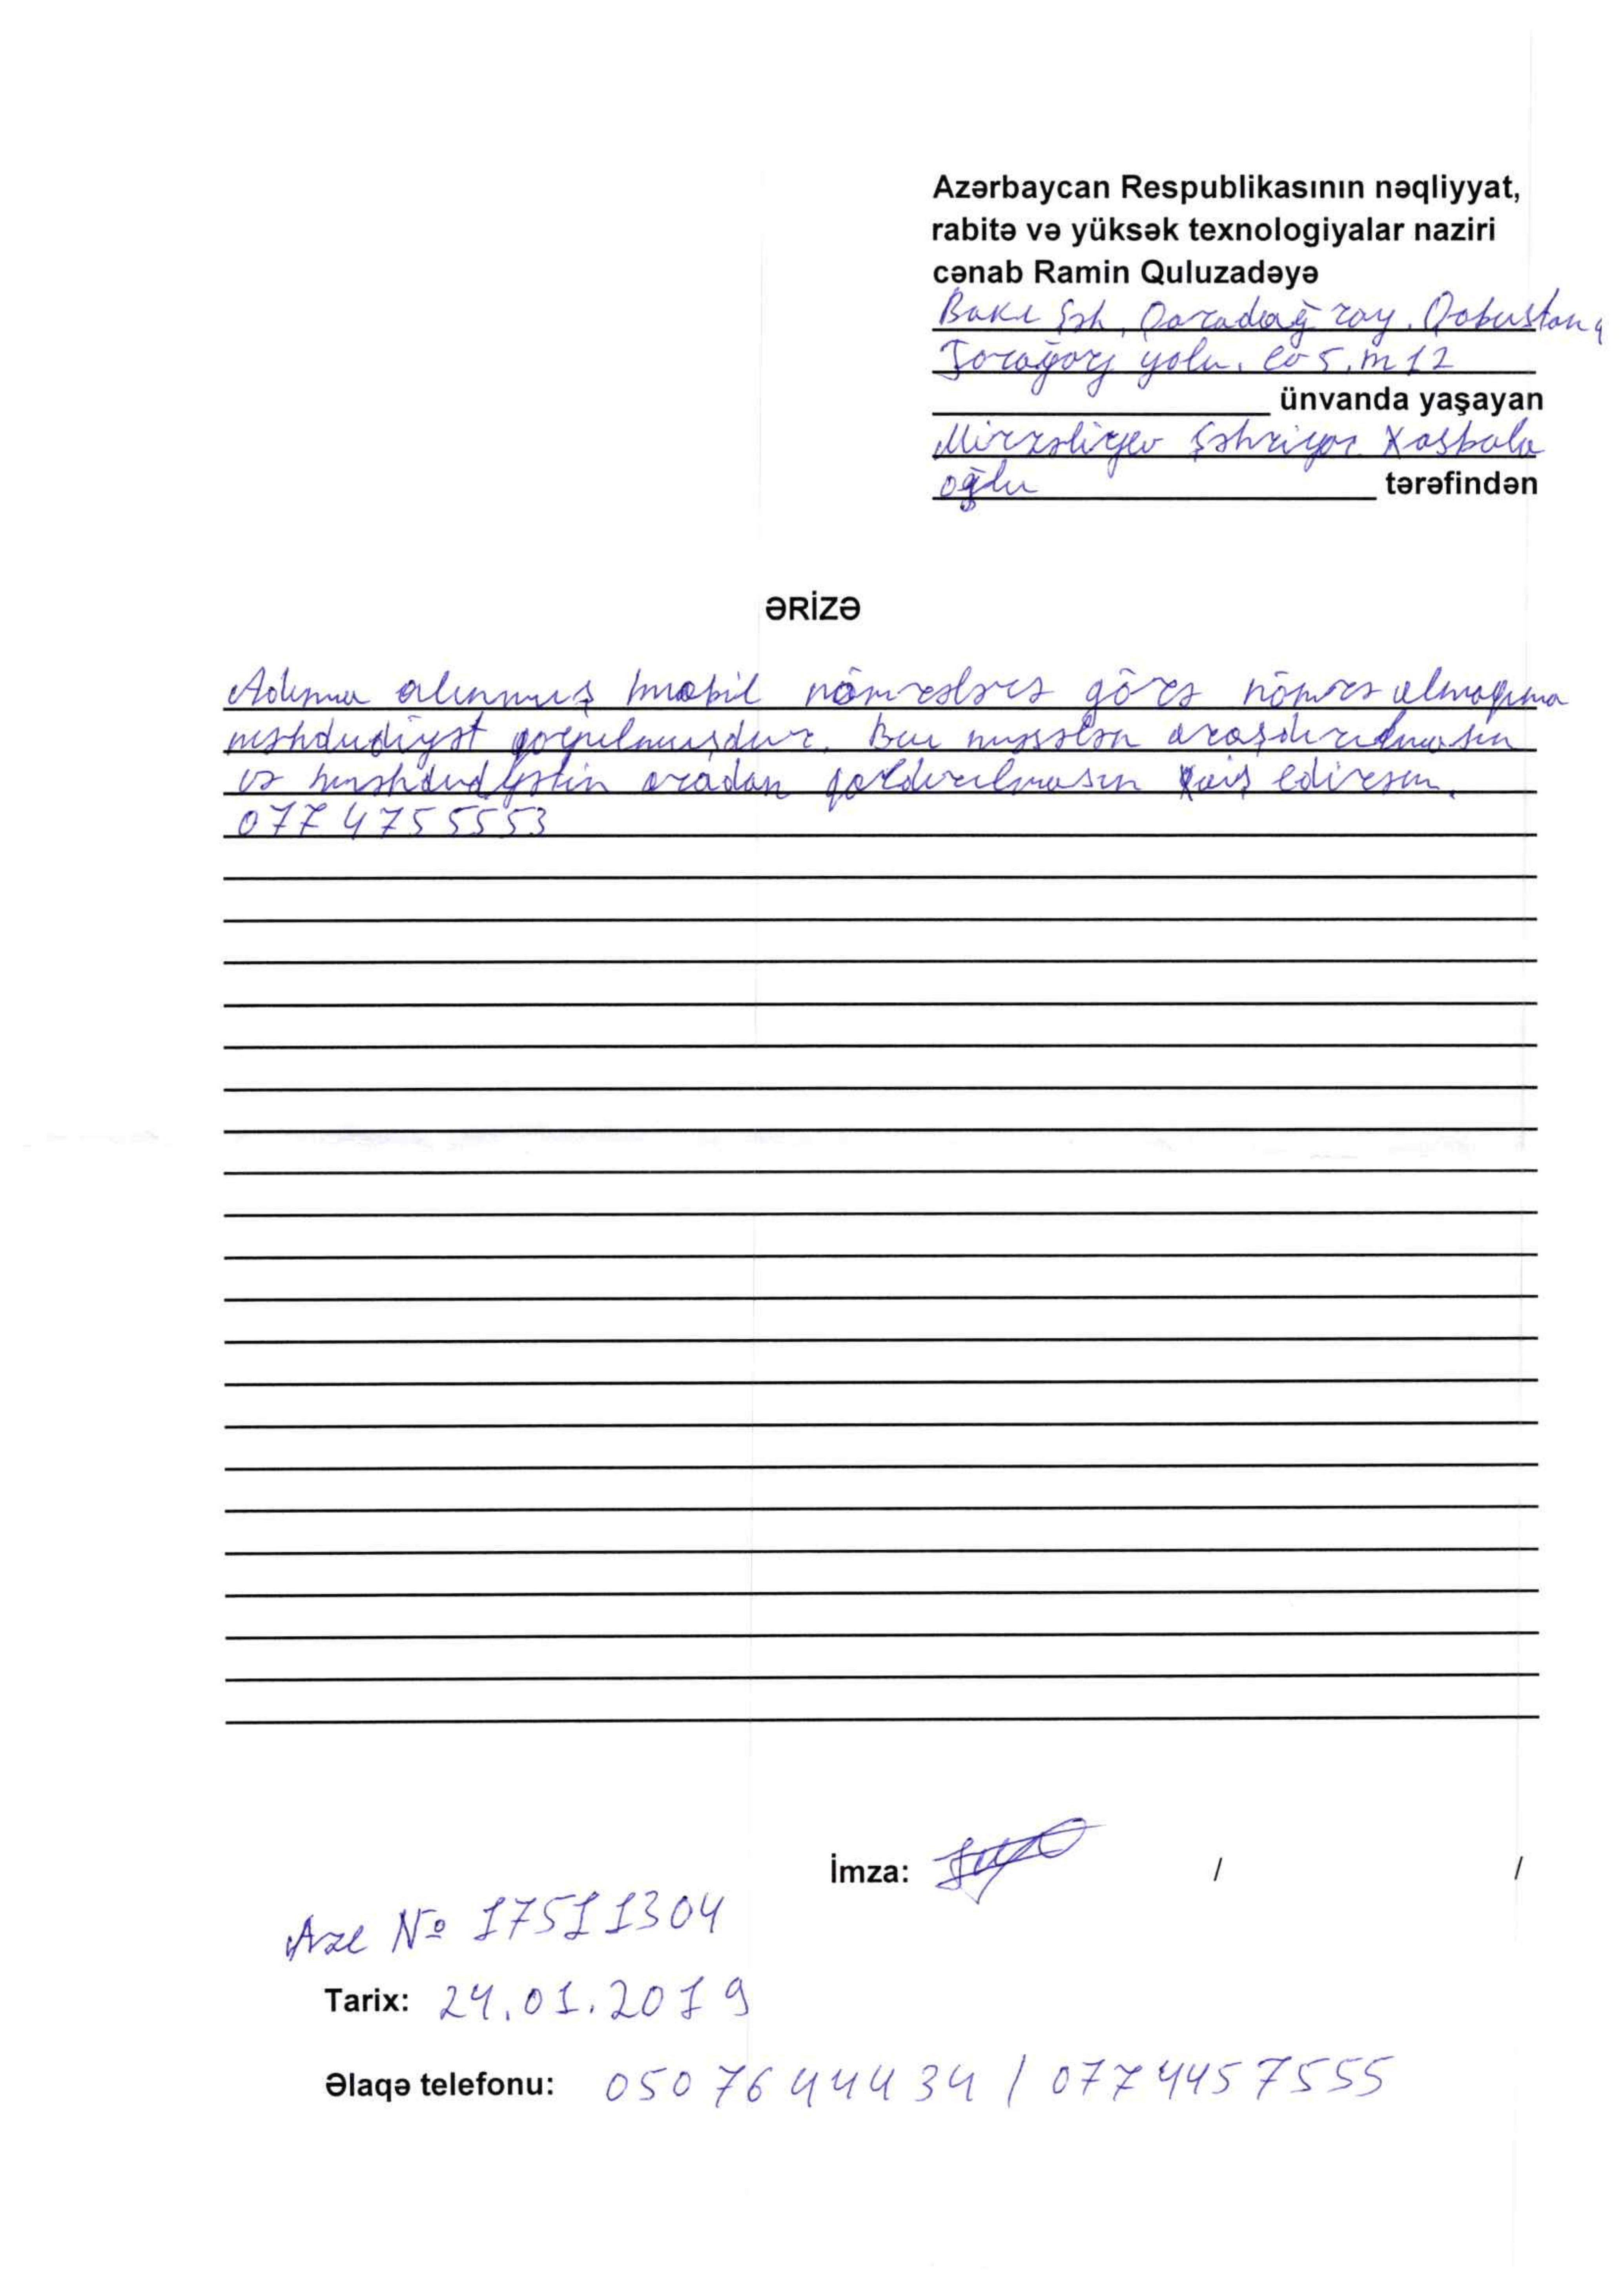 Azərbaycan Respublikasının nəqliyyat,
rabitə və yüksək texnologiyalar naziri
cənab Ramin Quluzadəyə
Bakı şəh, Qaradağ ray. Qobustan q
yolu. ev 5, m 12
ünvanda yaşayan
Mirzəliyev Şəhriyar Xasbala
oğlu tərəfindən
ƏRİZƏ
Adıma alınmış mobil nömrələrə görə nömrə almağıma
məhdudiyət qoyulmuşdur. Bu məsələn araşdırılmasın
və məhdudiyətin aradan qaldırılmasın xaiş edirəm.
077 475 55 53
İmza: / /
Aze № 17511304
Tarix: 24.01.2019
Əlaqə telefonu: 050 764 44 34 / 077 445 75 55